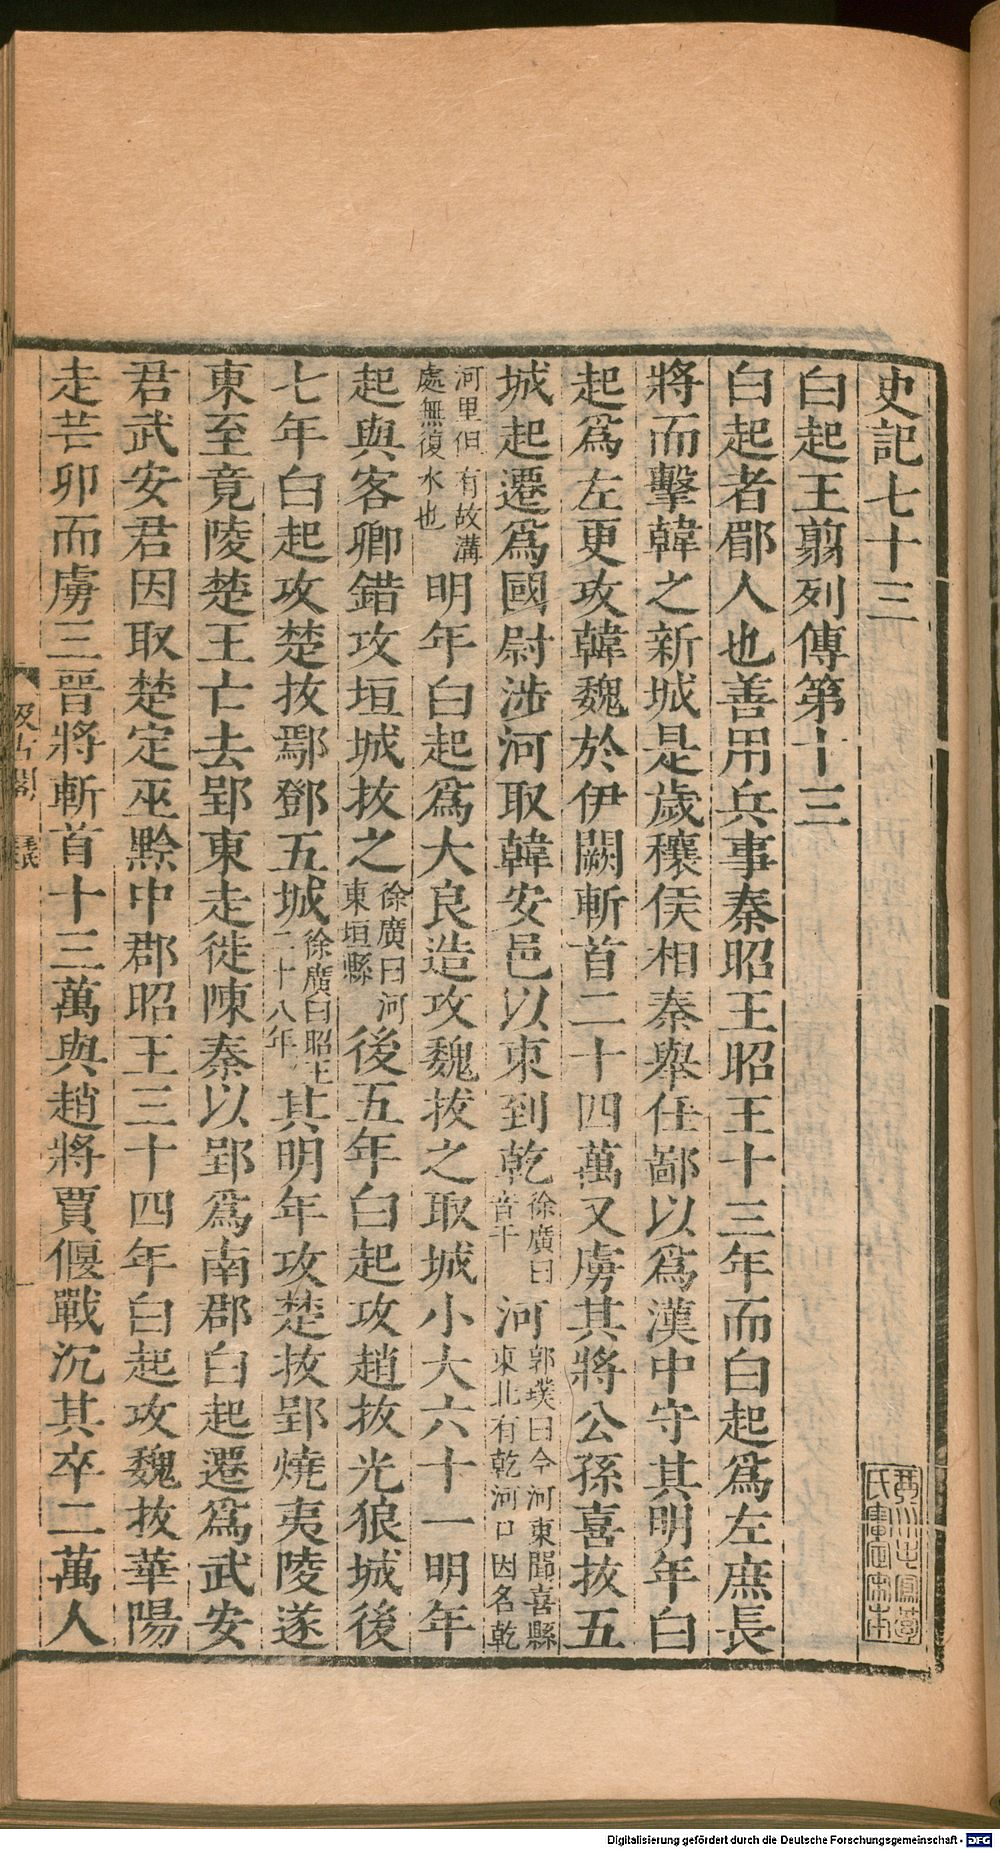 史記七十三
白起王翦列傳第十三
白起者郿人也善用兵事秦昭王昭王十三年而白起爲左庶長
將而擊韓之新城是歲穰侯相秦舉任鄙以爲漢中守其明年白
起爲左更攻韓魏於伊闕斬首二十四萬又虜其將公孫喜拔五
城起遷爲國尉涉河取韓安邑以東到乾徐廣曰音干河郭璞曰今河東聞喜縣東北有乾河口因名乾
河里但有故溝處無復水也明年白起爲大良造攻魏拔之取城小大六十一明年
起與客卿錯攻垣城拔之徐廣曰河東垣縣後五年白起攻趙拔光狼城後
七年白起攻楚拔鄢鄧五城徐廣曰昭王二十八年其明年攻楚拔郢燒夷陵遂
東至竟陵楚王亡去郢東走徙陳秦以郢爲南郡白起遷爲武安
君武安君因取楚定巫黔中郡昭王三十四年白起攻魏拔華陽
走芒卯而虜三晉將斬首十三萬與趙將賈偃戰沉其卒二萬人
汲古閣
Digitalisierung gefördert durch die Deutsche Forschungsgemeinschaft - DFG